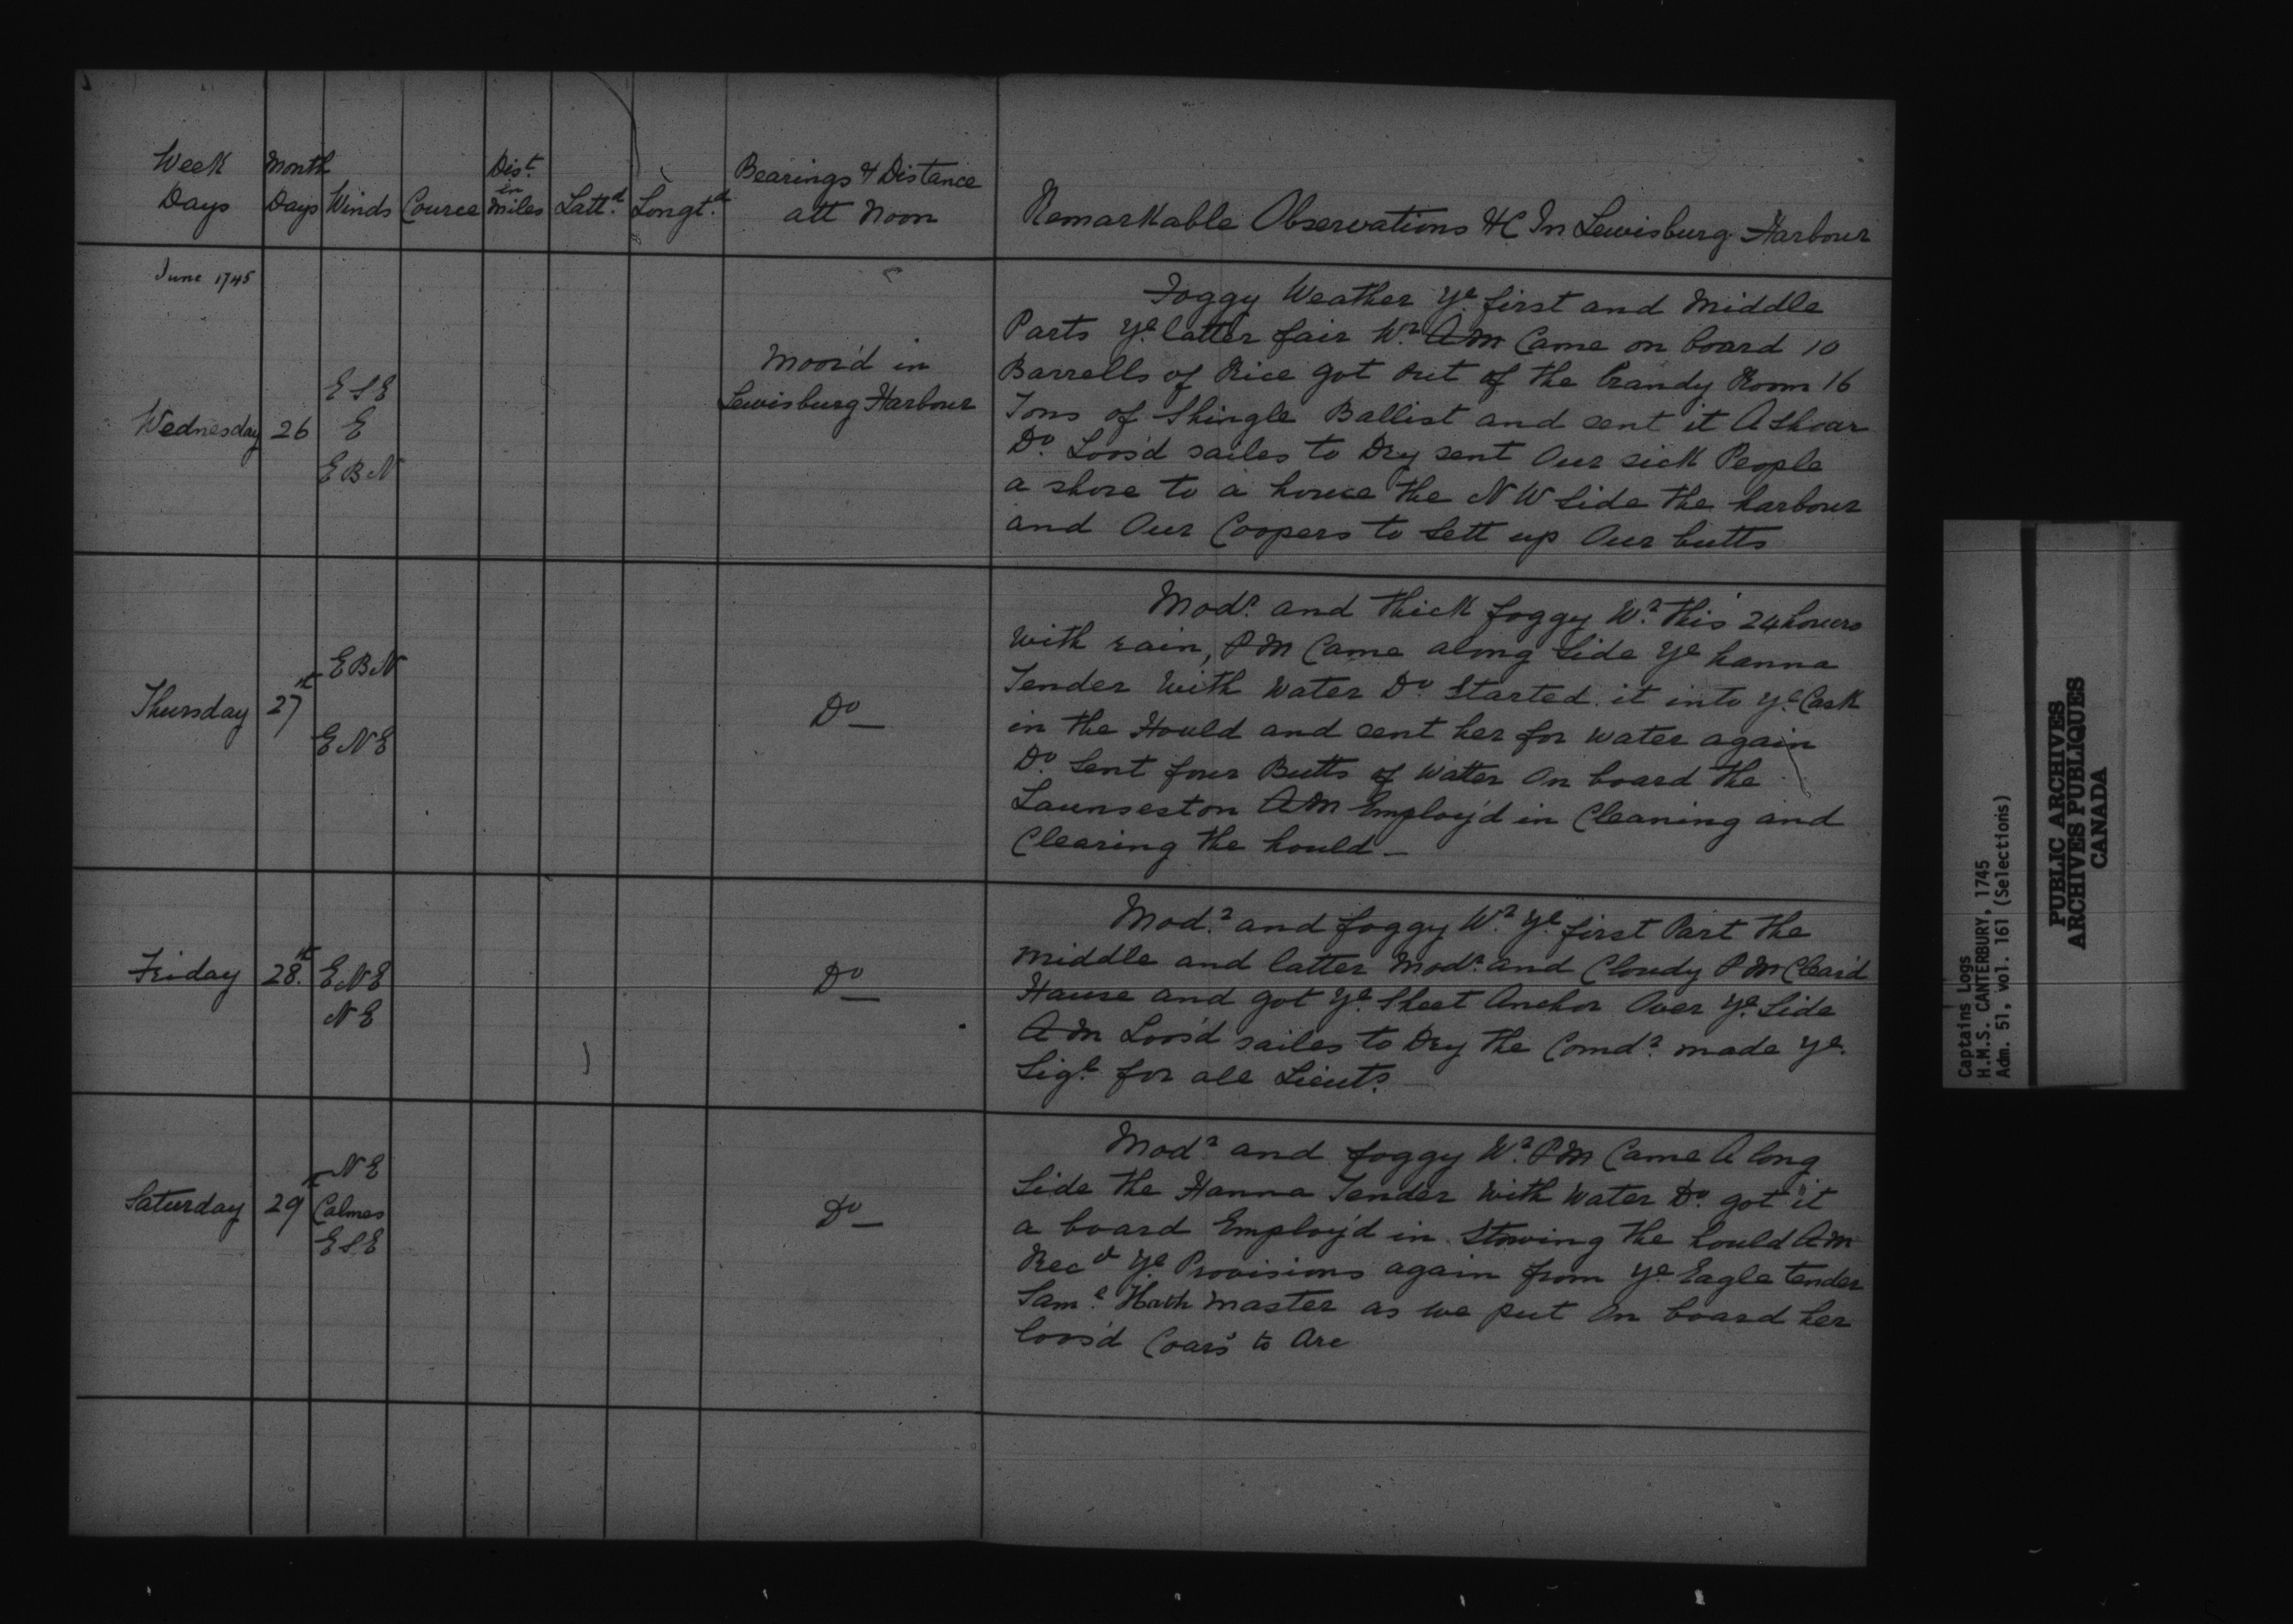 Week Days
Month Days
Winds
Cource
Dist. in Miles
Latt.d
Longt.d
Bearings & Distance
att Noon
Remarkable Observations &C In Lewisburg Harbour
June 1745
Wednesday 26
E S E
E
E B N
Moor'd in
Lewisburg Harbour
Foggy Weather Ye. first and Middle
Parts Ye. latter fair Wr. AM Came on board 10
Barrells of Rice got out of the Brandy Room 16
Tons of Shingle Ballist and sent it A Shoar
Do. Loos'd sailes to Dry sent Our sick People
a shore to a house the N W Side the harbour
and Our Coopers to Sett up Our butts
Thursday 27th
E B N
E N E
Do
Modr. and thick foggy Wr. this 24 hours
With rain, PM Came along Side Ye hanna
Tender With Water Do. Started it into Ye. Cask
in the Hould and sent her for Water again
Do. Sent four Butts of Watter On board the
Launseston AM Employ'd in Cleaning and
Clearing the hould
Friday 28th.
E N E
N E
Do
Modr. and foggy Wr. Ye. first Part the
Middle and latter Modr. and Cloudy PM Clear'd
Hause and got Ye. Sheet Anchor Over Ye. Side
AM Loos'd sailes to Dry the Comdr. made Ye.
Sigl. for all Lieuts.
Saturday 29th
N E
Calmes
E S E
Do
Modr. and foggy Wr. PM Came A long
Side the Hanna Tender With Water Do. got it
a board Employ'd in Stowing the hould AM
Recd Ye Provisions again from Ye. Eagle tender
Saml. master as we put On board her
loos'd Coars to Are
Captains Logs
H.M.S. CANTERBURY, 1745
Adm. 51, vol. 161 (Selections)
PUBLIC ARCHIVES
ARCHIVES PUBLIQUES
CANADA